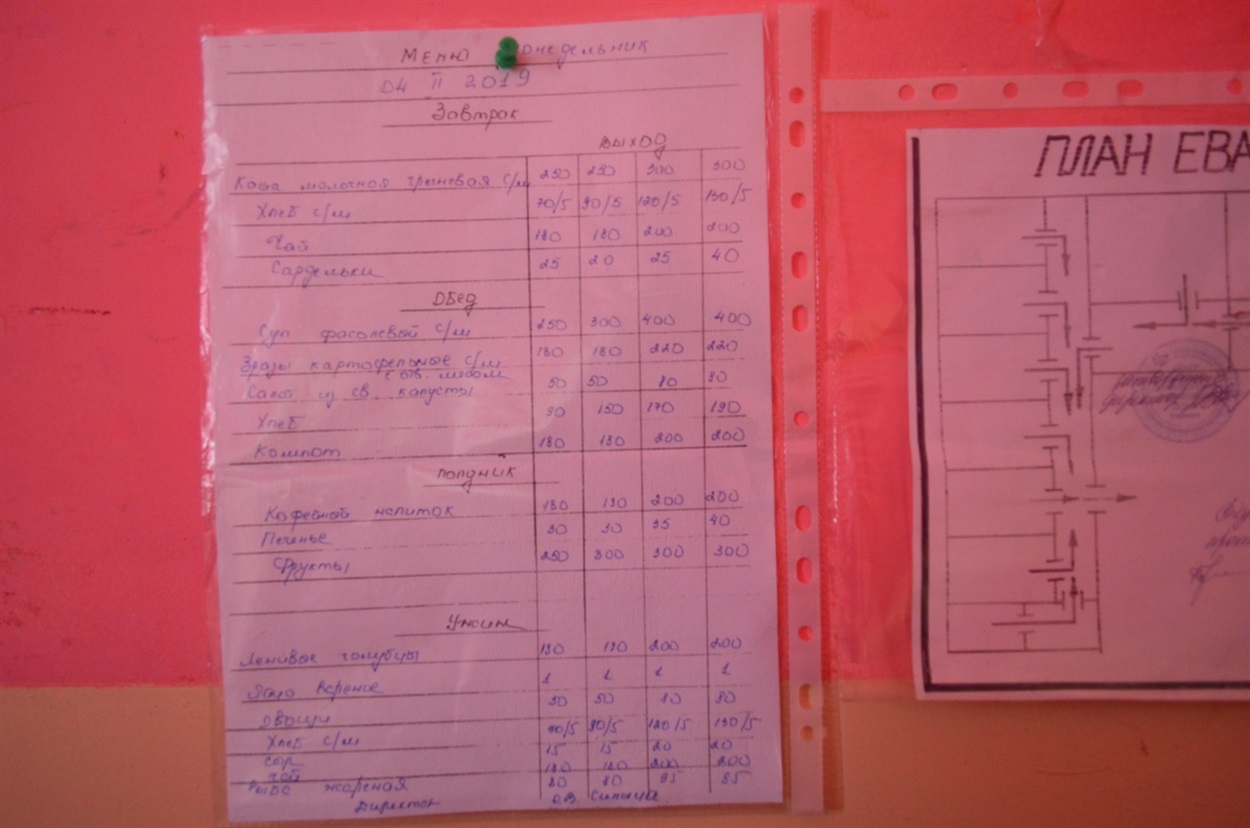 Меню понедельник
04 II 2019
Завтрак
выход
Каша молочная гречневая с/м 250 250 300 300
Хлеб с/м 70/5 90/5 120/5 130/5
Чай 180 180 200 200
Сардельки 25 20 25 40
Обед
Суп фасолевый с/м 250 300 400 400
Зразы картофельные с/м 180 180 220 220
с отв. мясом
Салат из св. капусты 50 50 80 80
Хлеб 150 170 190
Компот 180 180 200 200
Полдник
Кофейный напиток 180 180 200 200
Печенье 30 30 35 40
Фрукты 250 300 300 300
Ужин
Ленивые голубцы 180 180 200 200
Яйцо вареное 1 1 1 1
Овощи 50 50 80 80
Хлеб с/м 70/5 90/5 120/5 130/5
Сыр 15 15 20 20
Чай 180 180 200 200
Рыба жареная 80 80 95 95
Директор О.В. Синица
ПЛАН ЕВА